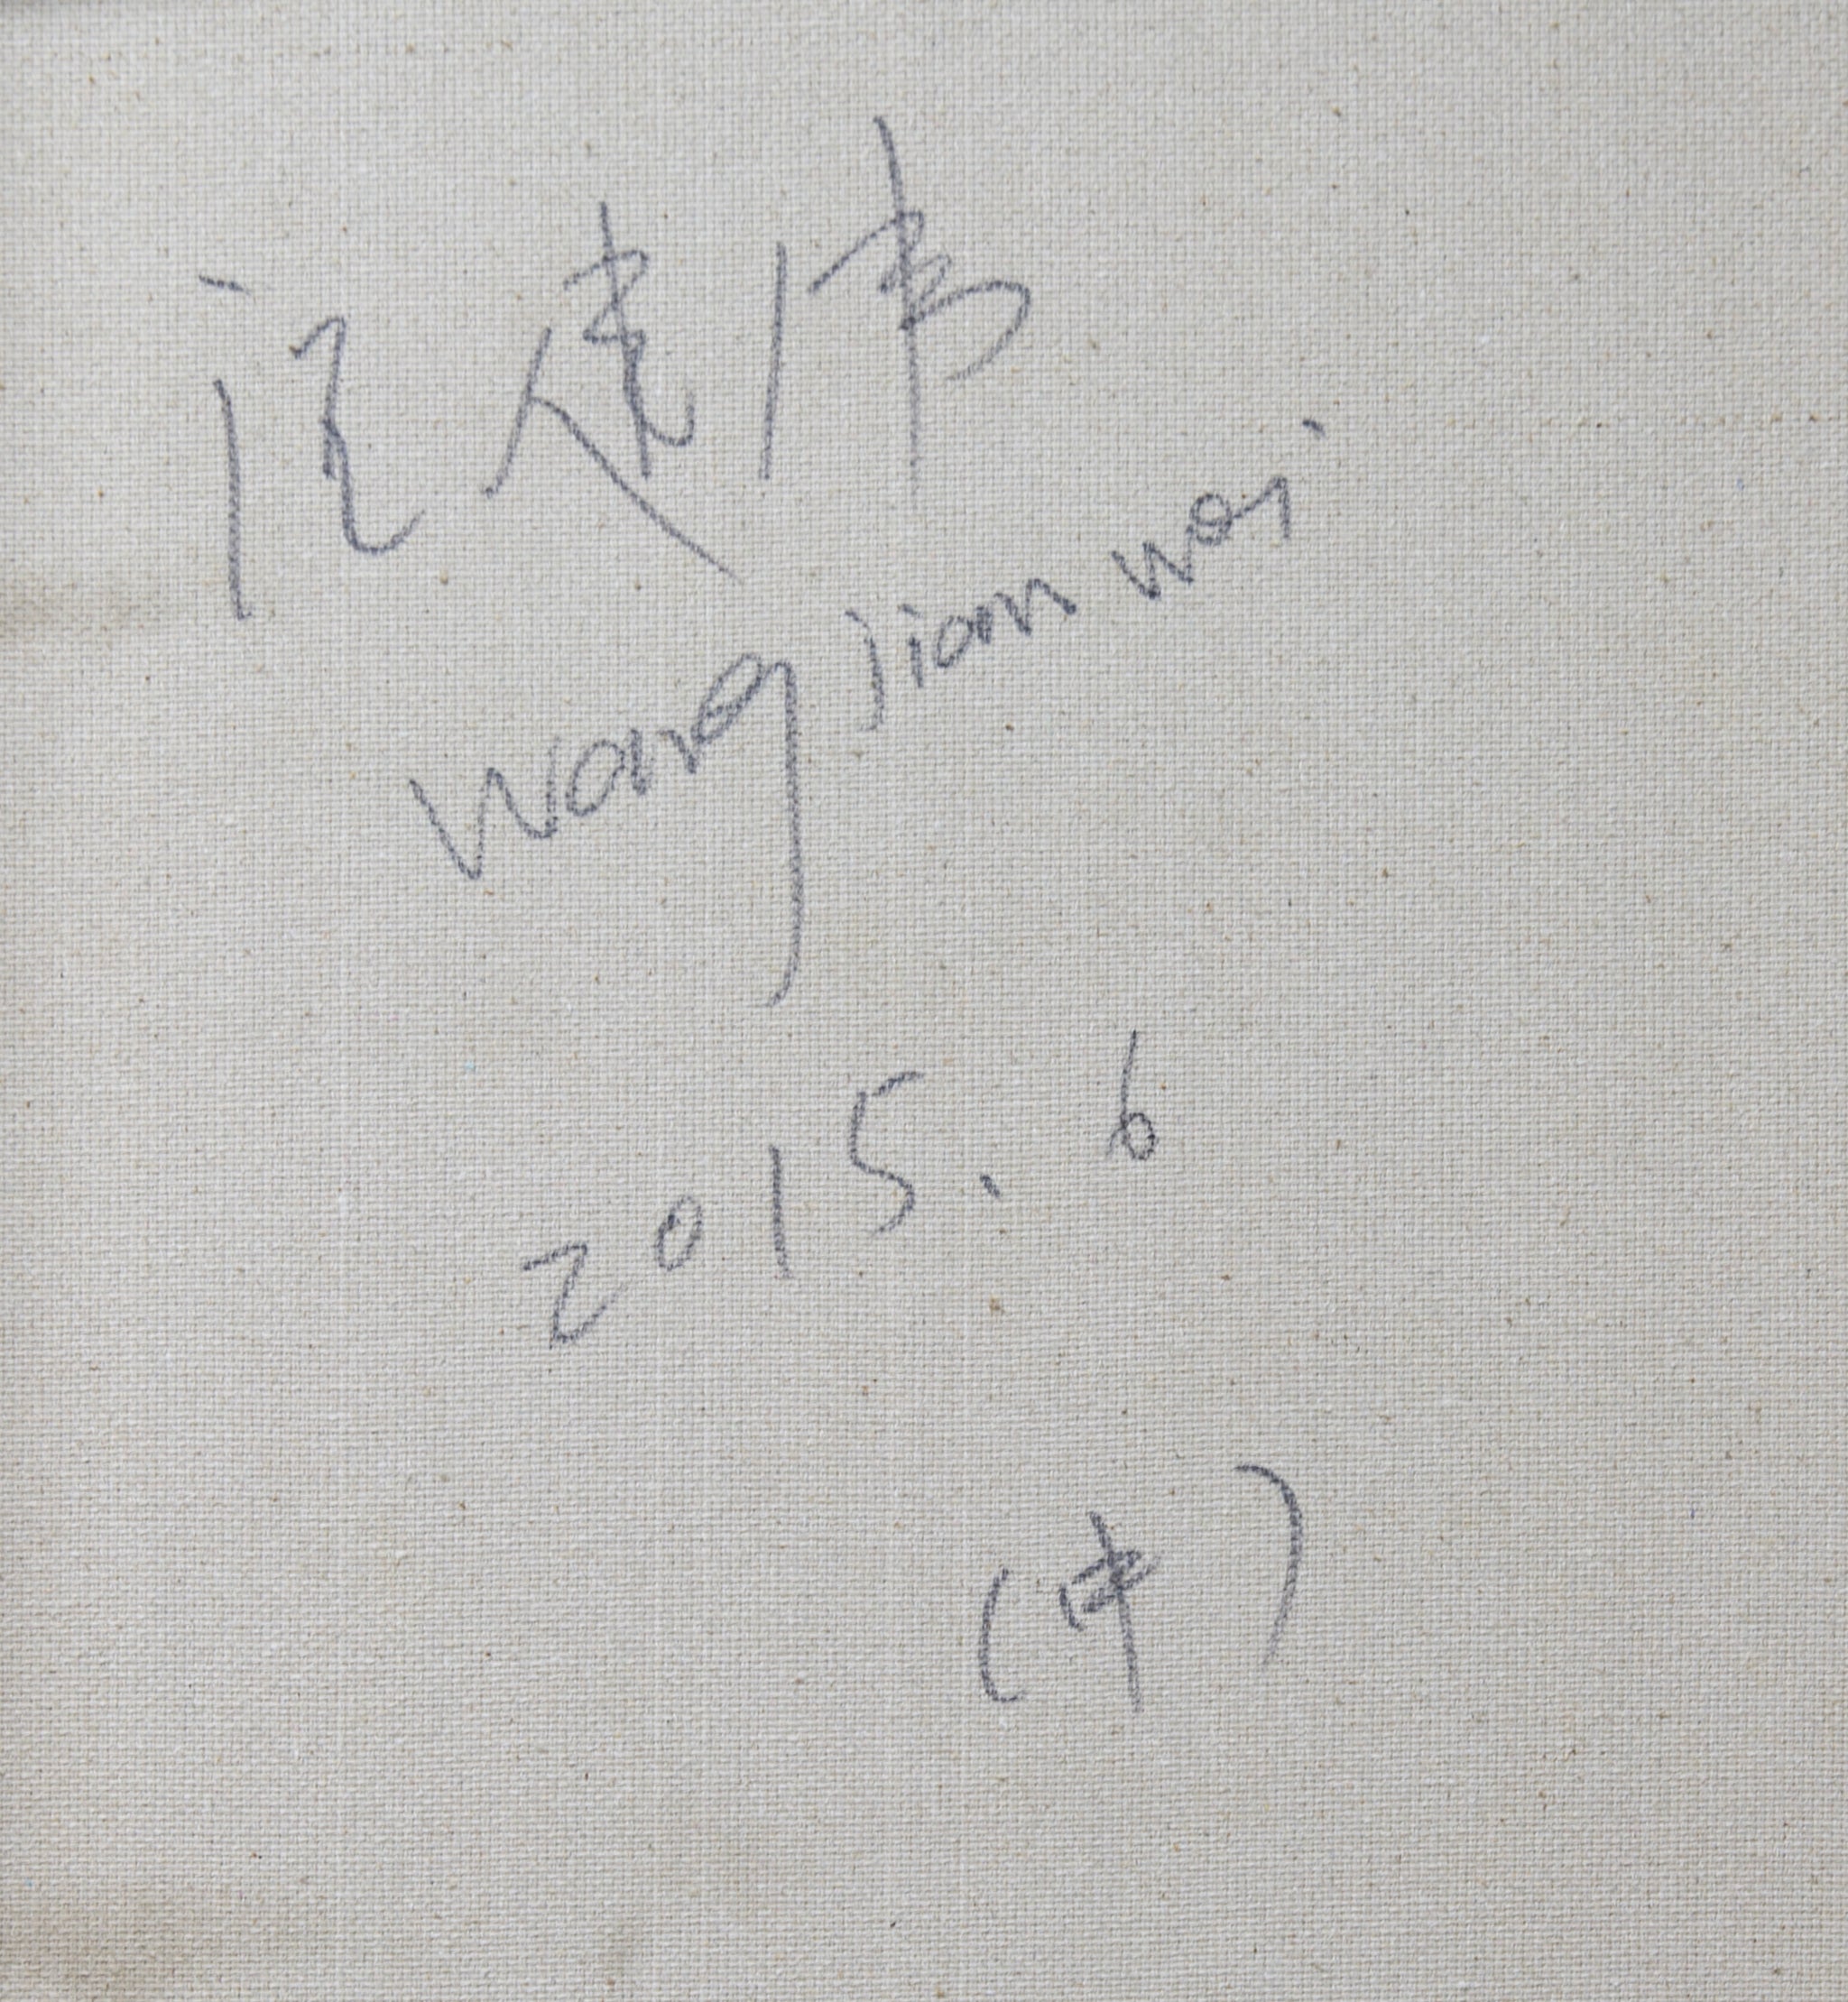 汪建伟
Wang jian wei
2015.6
(中)